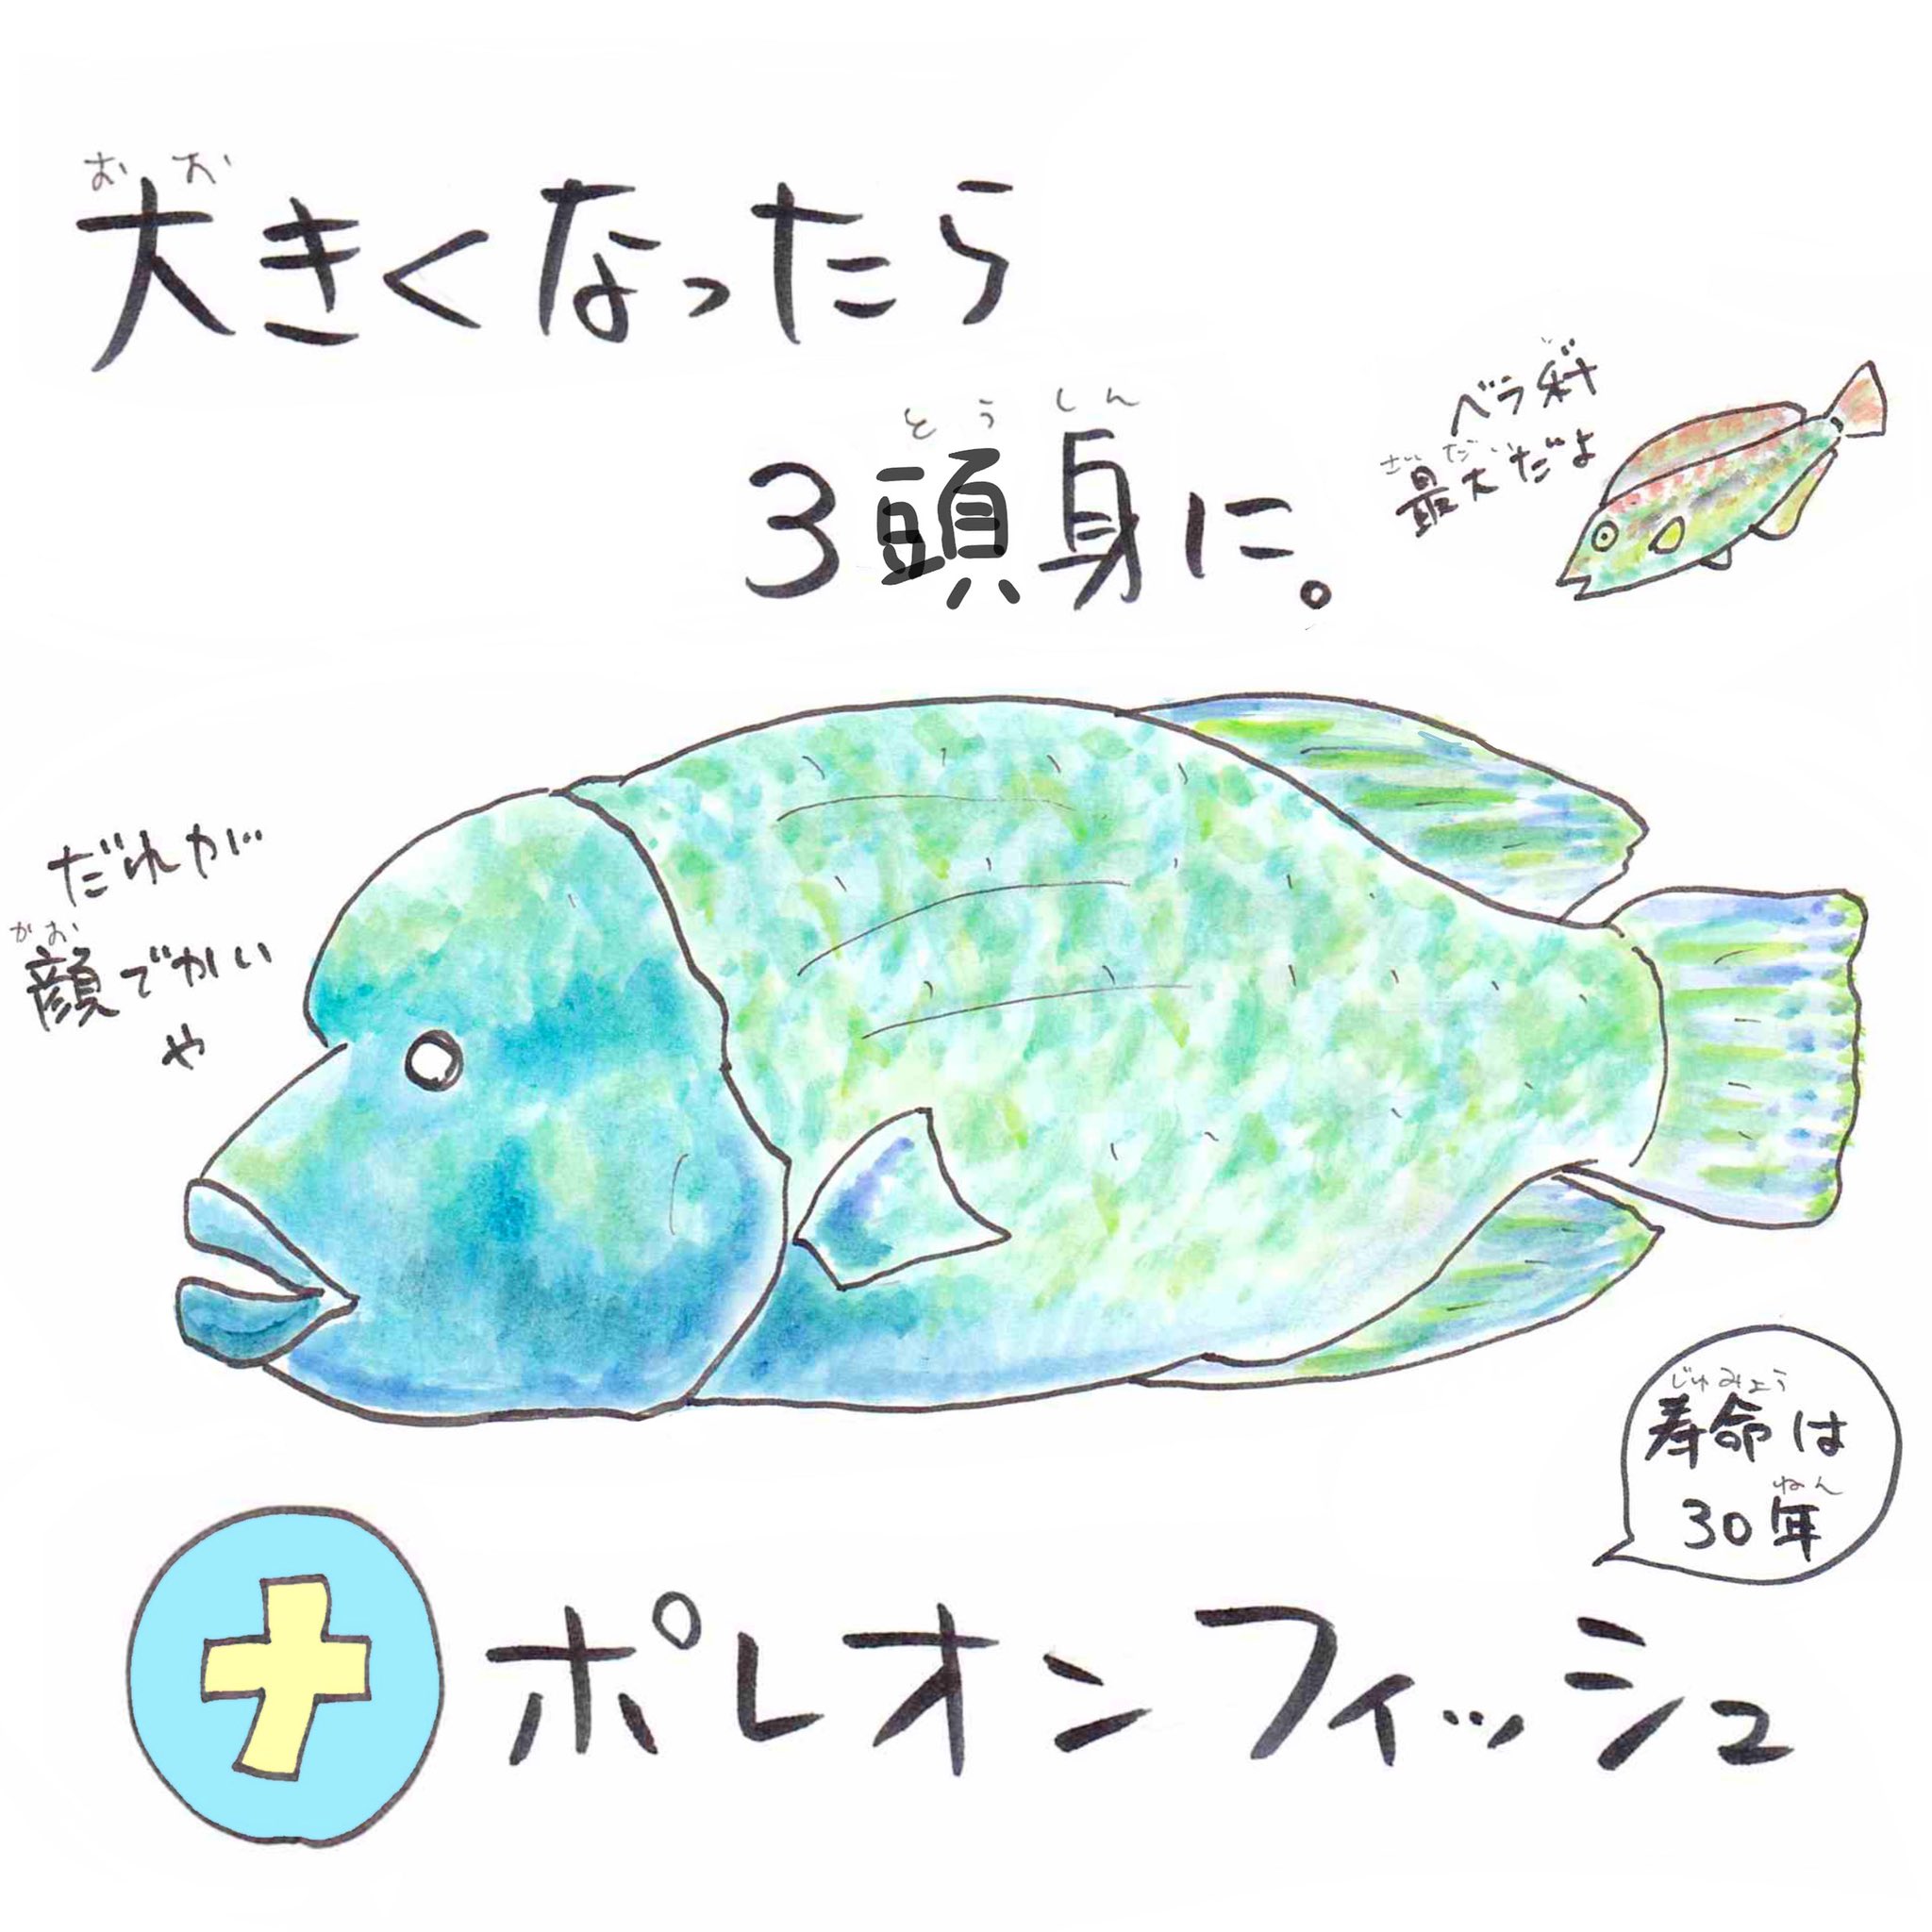 おお
大きくなったら
とうしん
3頭身に。
ベラ科
さいだい
最大だよ
だれが
かお
顔でかい
や
じゅみょう
寿命は
ねん
30年
ナポレオンフィッシュ